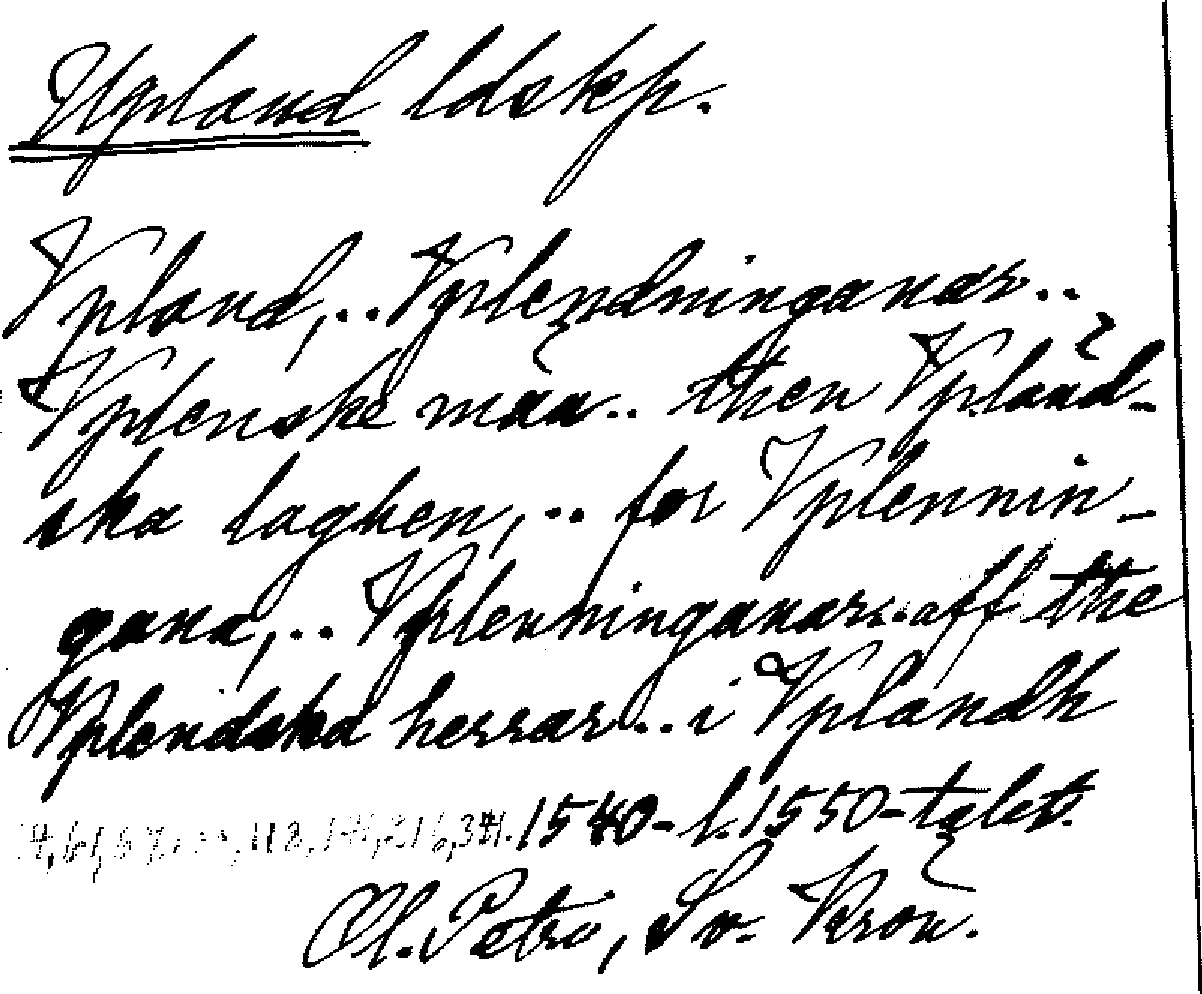 Upland ldskp.
Vpland,.. Vplendninganar..
Vplenske män.. then Vpländ-
ska laghen,.. for Vplennin-
gana,.. Vplenninganar.. aff the
Vplendska herrar... i Vplandh
112, 216, 1540- l. 1550-talet.
Ol. Petro, Sv. Krön.